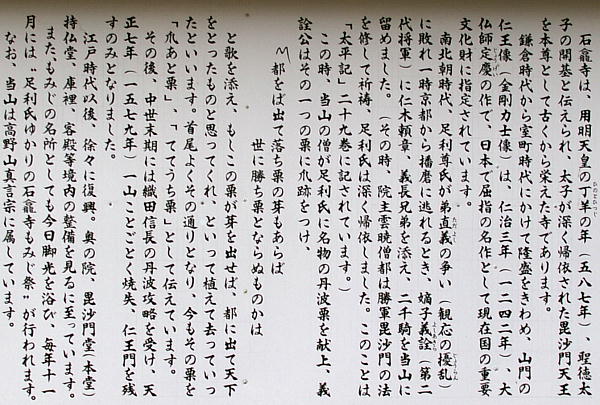 石龕寺は、用明天皇の丁羊の年（五八七年）、聖徳太
子の開基と伝えられ、太子が深く帰依された毘沙門天王
を本尊として古くから栄えた寺であります。
鎌倉時代から室町時代にかけて隆盛をきわめ、山門の
仁王像（金剛力士像）は、仁治三年（一二四二年）、大
仏師定慶の作で、日本で屈指の名作として現在国の重要
文化財に指定されています。
南北朝時代、足利尊氏が弟直義の争い（観応の擾乱）
に敗れ一時京都から播磨に逃れるとき、嫡子義詮（第二
代将軍）に仁木頼章、義長兄弟を添え、二千騎を当山に
留めました。（その時、院主雲暁僧都は勝軍毘沙門の法
を修して祈祷、足利氏は深く帰依しました。このことは
「太平記」二十九巻に記されています。）
この時、当山の僧が足利氏に名物の丹波栗を献上、義
詮公はその一つの栗に爪跡をつけ、
都をば出て落ち栗の芽もあらば
世に勝ち栗とならぬものかは
と歌を添え、もしこの栗が芽を出せば、都に出て天下
をとったものと思ってくれ、といって植えて去っていっ
たといいます。首尾よくその通りとなり、今もその栗を
「爪あと栗」、「ててうち栗」として伝えています。
その後、中世末期には織田信長の丹波攻略を受け、天
正七年（一五七九年）一山ことごとく焼失、仁王門を残
すのみとなりました。
江戸時代以後、徐々に復興。奥の院、毘沙門堂（本堂）
持仏堂、庫裡、客殿等境内の整備を見るに至っています。
またもみじの名所としても今日脚光を浴び、毎年十一
月には、足利氏ゆかりの石龕寺もみじ祭〟が行われます。
なお、当山は高野山真言宗に属しています。